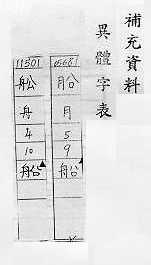 補充資料
異體字表
05681
月
5
9
船
11501
舩
舟
4
10
船